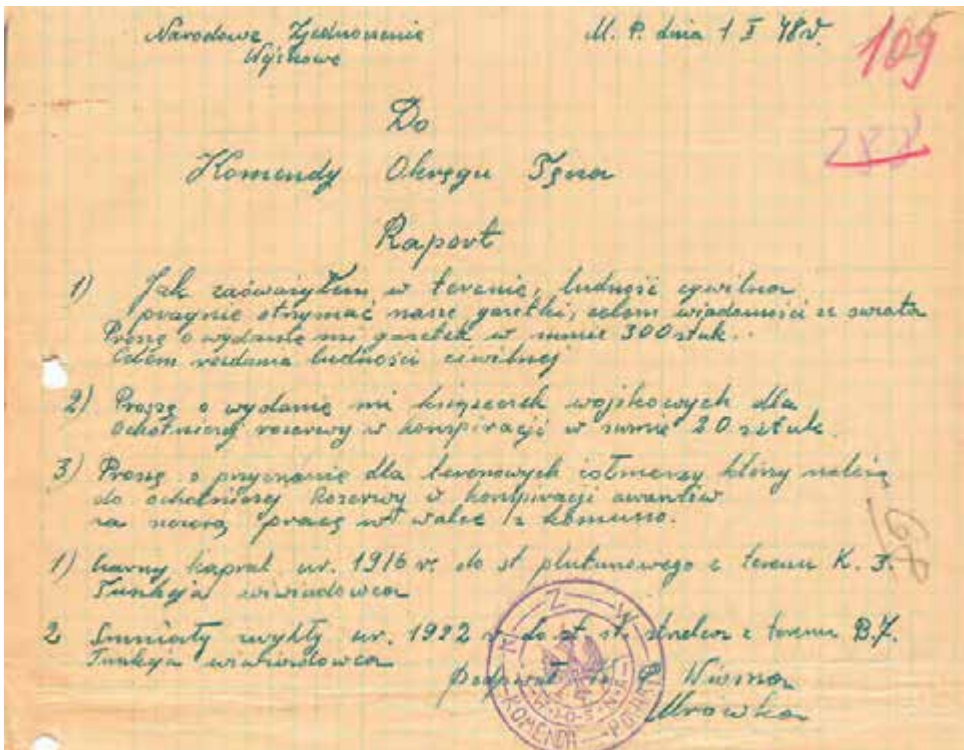 Narodowe Zjednoczenie
Wojskowe
M. P. dnia 1 X 48 r.
109
282
Do
Komendy Okręgu Tęcza
Raport
1) Jak zaówarzyłem w terenie, ludność cywilna
pragnie otrzymać nasze gazetki, celem wiadomości ze swiata
Proszę o wydanie mi gazetek w sumie 300 sztuk.
Celem rozdania ludności ciwilnej
2) Proszę o wydanie mi książeczek wojskowych dla
Ochotniczej rezerwy w konspiracji w sumie 20 sztuk.
3) Proszę o przyznanie dla terenowych żołnierzy którzy należą
do ochotniczej Rezerwy w konspiracji awansów
za pracę w walce z komuno.
1) Czarny kapral ur. 1916 r. do st. plutonowego z terenu K.
Funkcja wiwiadowca
2 Smiały zwykły ur. 1922 r. do st. st. strzelca z terenu B.
Funkcja wiwiadowca
N.Z.W.
KOMENDA
Mrówka